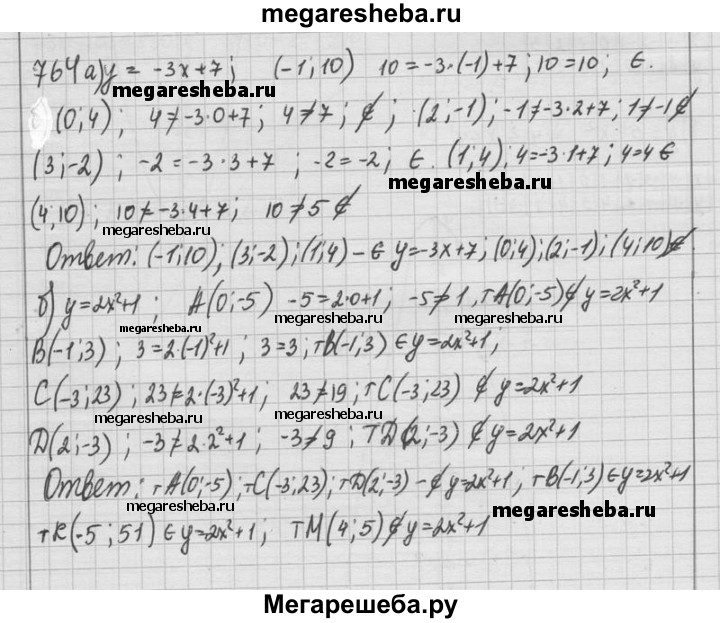 megaresheba.ru
764 а) y = -3x+7; (-1; 10) 10 = -3·(-1)+7; 10=10; ∈.
megaresheba.ru
(0; 4); 4 ≠ -3·0+7; 4≠7; ∉; (2; -1); -1≠-3·2+7; 1≠-1 ∉
megaresheba.ru megaresheba.ru
(3; -2); -2 = -3·3+7; -2=-2; ∈. (1; 4); 4=-3·1+7; 4=4 ∈
megaresheba.ru
(4; 10); 10 ≠ -3·4+7; 10≠5 ∉
megaresheba.ru megaresheba.ru
Ответ: (-1; 10); (3; -2); (1; 4) - ∈ y=-3x+7; (0; 4); (2; -1); (4; 10) ∉.
megaresheba.ru
б) y=2x²+1; A(0; -5) -5=2·0+1; -5≠1, т A(0; -5) ∉ y=2x²+1
megaresheba.ru megaresheba.ru
B(-1; 3); 3=2·(-1)²+1; 3=3; т B(-1; 3) ∈ y=2x²+1;
C(-3; 23); 23≠2·(-3)²+1; 23≠19; т C(-3; 23) ∉ y=2x²+1
megaresheba.ru megaresheba.ru
D(2; -3); -3≠2·2²+1; -3≠9; т D(2; -3) ∉ y=2x²+1
megaresheba.ru
Ответ: т A(0; -5); т C(-3; 23); т D(2; -3) - ∉ y=2x²+1; т B(-1; 3) ∈ y=2x²+1
megaresheba.ru
т K(-5; 51) ∈ y=2x²+1; т M(4; 5) ∉ y=2x²+1
Мегарешеба.ру